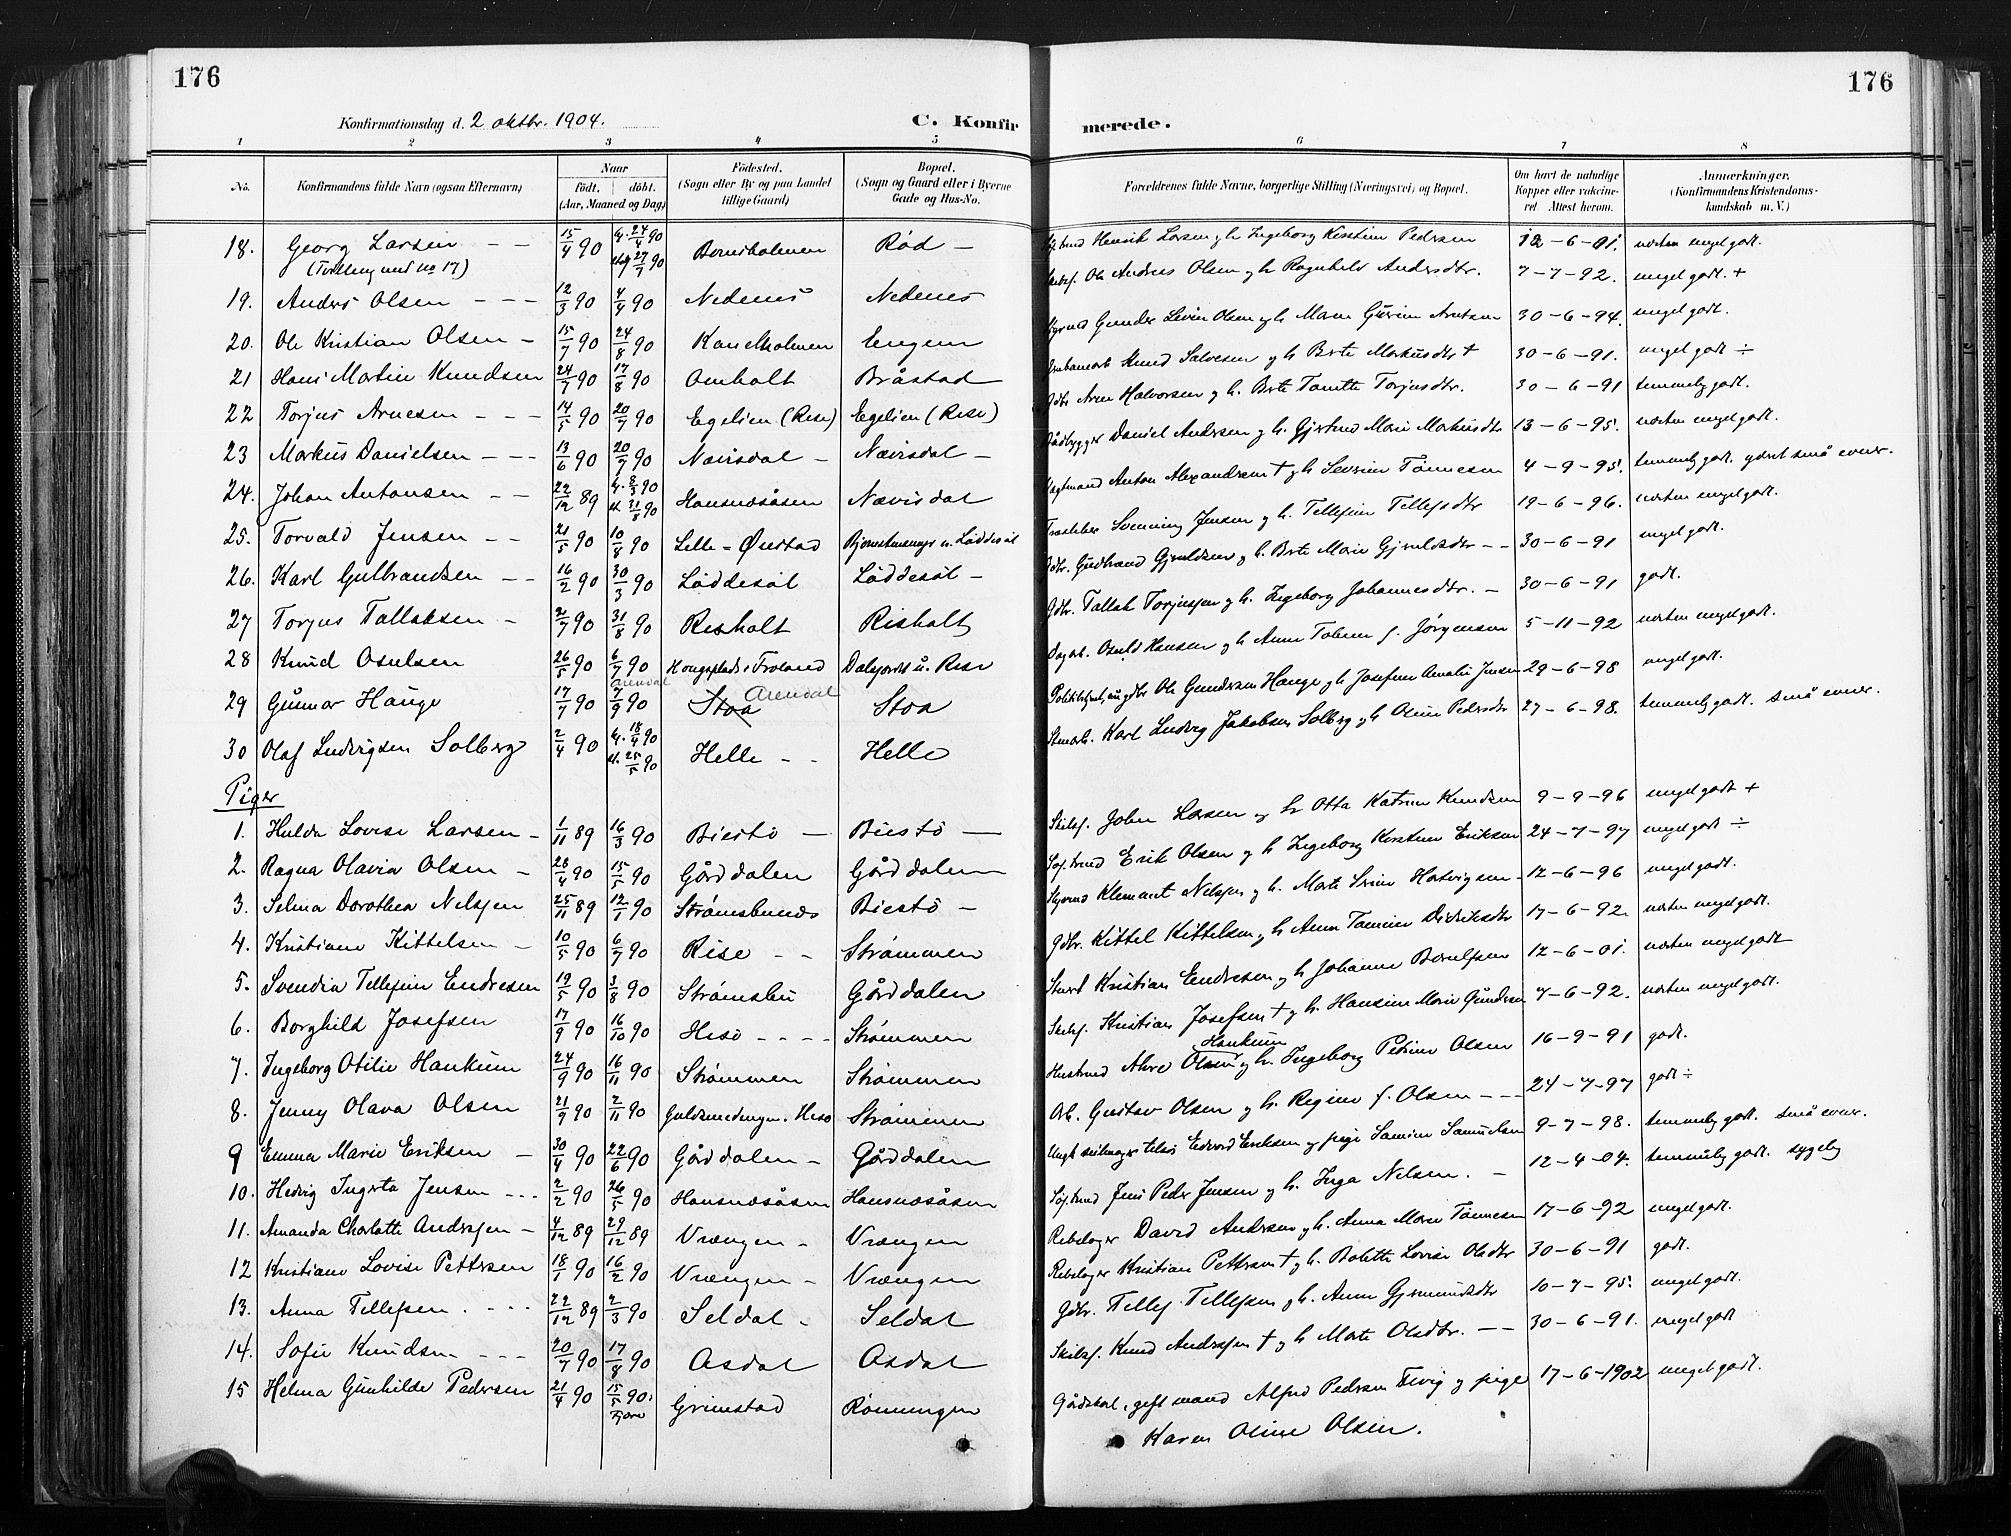 176
176
Konfirmationsdag d. 2 oktbr. 1904.
C. Konfir
merede.
1 2 3 4 5 6 7 8
No. Konfirmandens fulde Navn (ogsaa Efternavn) Naar födt. döbt. (Aar, Maaned og Dag) Födested. (Sogn eller By og paa Landet tillige Gaard) Bopæl. (Sogn og Gaard eller i Byerne Gade og Hus-No. Forældrenes fulde Navne, borgerlige Stilling (Næringsvei) og Bopæl. Om havt de naturlige Kopper eller vakcineret Attest herom. Anmærkninger. (Konfirmandens Kristendomskundskab m. V.)
18. Georg Larsen – – 15/4 90 24/4 90 27/7 90 Bomsholmen Rød – Henrik Larsen g h Ingeborg Kirstine Pedersen 12–6–01. næsten meget godt.
(Tvilling med no 17)
19. Anders Olsen – – – 12/3 90 4/4 90 Nedenes Nedenes Ole Andreas Olsen g h Ragnhild Andersdtr. 7–7–92. meget godt. +
20. Ole Kristian Olsen – 15/7 90 24/8 90 Engene Gunder Levin Olsen g h Maren Gurine Arntsen 30–6–94. meget godt.
21 Hans Martin Knudsen 24/7 90 17/8 90 Omholt Bråstad Knud Salvesen g h Berte Markusdtr + 30–6–91. meget godt ÷
22 Torjus Arnesen – – – 14/5 90 20/7 90 Egelien (Rise) Egelien (Rise) Gdbr Arne Halvorsen g h. Berte Tomtte Torjusdtr. 30–6–91 temmelig godt.
23 Markus Danielsen – – – 13/6 90 20/7 90 Nævisdal – Nævisdal – Bådbygger Daniel Andersen g h. Gjertrud Marie Markusdtr 13–6–95. næsten meget godt.
24. Johan Antonsen – – 22/12 89 8/3 90 31/8 90 Hansnæsåsen Nævisdal Anton Alexandersen + g h Severine Tønnesen 4–9–95. temmelig godt. ydret små evner.
25. Torvald Jensen – – 21/5 90 10/8 90 Lille-Ørestad Løddesøl Svenning Jensen g h. Tellefine Tellefsdtr 19–6–96. næsten meget godt.
26. Karl Gulbrandsen – – 16/2 90 30/3 90 Løddesøl Løddesøl – Gdbr. Gudbrand Gjeruldsen g h. Berte Marie Gjeruldsdtr – – 30–6–91 meget godt.
27 Torjus Tallaksen – 2/7 90 31/8 90 Risholt Risholt Gdbr. Tallak Torjussen g h. Ingeborg Johannesdtr. – 30–6–91 godt.
28 Knud Oselsen 26/5 90 6/7 90 Hougsplads i Froland u. Rise Hansen g h Anne f. Jørgensen 5–11–92 næsten meget godt.
29 Gunnar Hauge 17/7 90 7/9 90 Arendal Stoa Arendal Stoa Ole Gundersen Hauge g h Josefine Amalie Jensen 29–6–98 meget godt.
30 Olaf Ludvigsen Solberg 2/4 90 18/4 90 25/5 90 Helle – – Helle Karl Ludvig Jakobsen Solberg g h Osine Pedersdtr 27–6–98. temmelig godt. små evner.
Piger
1. Hulda Lovise Larsen – 1/11 89 16/3 90 Biestø – Biestø – Skibsf. John Larsen g h Otta Katrine Knudsen 9–9–96 meget godt +
2. Ragna Olavia Olsen – 28/4 90 15/5 90 Gårddalen Gårddalen Erik Olsen g h Ingeborg Kirstine Eriksen 24–7–97 meget godt ÷
3. Selma Dorothea Nelsen 25/11 89 12/1 90 Strømsbunes Biestø – Styrmd Klemmet Nelsen g h. Marte Hartvigsen – 12–6–96 meget godt.
4. Kristiane Kittelsen – 10/5 90 6/7 90 Rise – – Strømmen Gdbr. Kittel Kittelsen g h Anne Tomine Didriksdtr 17–6–92. næsten meget godt.
5. Svendia Tellefine Endresen 19/5 90 3/8 90 Strømsbu Gårddalen Kristian Endresen g h Johanne Berulfsen 12–6–01. næsten meget godt
6. Borghild Josefsen 17/9 90 16/10 90 Hisø – – – – Strømmen Skibsf. Kristian Josefsen + g h. Hansine Marie Gundersen 7–6–92. næsten meget godt.
7. Ingeborg Otilie Hankum 24/9 90 16/11 90 Strømmen Strømmen Olsen Hankum g h. Ingeborg Petrine Olsen 16–9–91 godt.
8. Jenny Olava Olsen 21/9 90 2/11 90 Guldsmedengen. Hisø Strømmen Arb. Gustav Olsen g h. Regine f. Olsen – – – 24–7–97 godt ÷
9 Emma Marie Eriksen – 30/4 90 22/6 90 Gårddalen – Gårddalen Edvard Eriksen g pige Samine Samuelsen 9–7–98. temmelig godt. små evner.
10. Hedvig Ingerta Jensen – – – 2/2 90 26/5 90 Hansnæsåsen Hansnæsåsen Jens Peder Jensen g h. Inga Nelsen. – 12–4–04. temmelig godt. sygelig
11. Amanda Charlotte Andersen – 4/12 89 29/12 89 Vrængen – Vrængen Rebslager David Andersen g h. Anna Marie Tønnesen 17–6–92 meget godt.
12 Kristiane Lovise Pettersen 18/1 90 16/2 90 Vrængen – Vrængen Rebslager Kristian Pettersen + g h. Bolette Lovise Olsdtr 30–6–91 godt.
13. Anna Tellefsen. – – – 22/12 89 2/3 90 Seldal – Seldal Gdbr. Tellef Tellefsen g h. Anne Gjermundsdtr 10–7–95. meget godt.
14. Sofie Knudsen – – – 20/7 90 17/8 90 Asdal Asdal Skibsf. Knud Andersen + g h Marte Olsdtr. – – 30–6–91. meget godt
15 Helma Gunhilde Pedersen 21/4 90 15/5 90. Fjære Grimstad Rønningen gift mand Alfred Pedersen g pige 17–6–1902 meget godt.
Karen Oline Olsen.